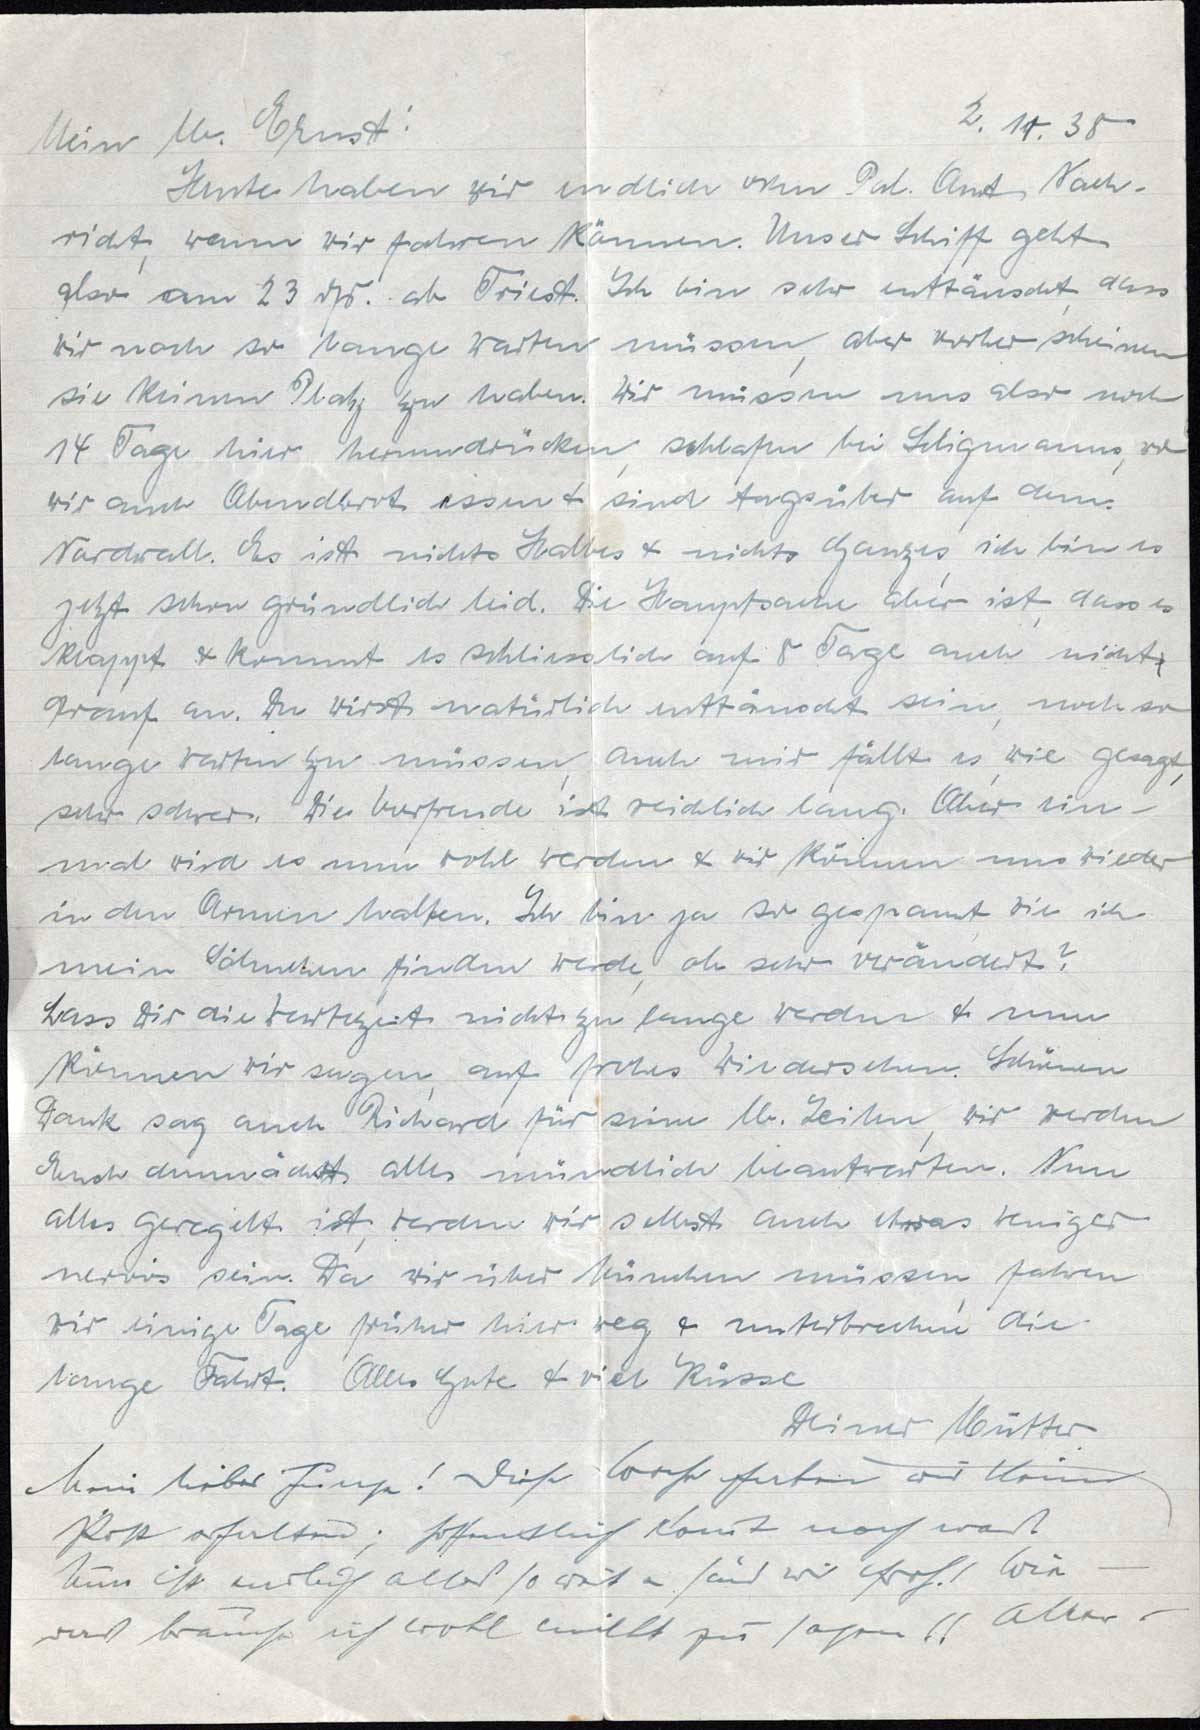 Mein lb. Ernst!
2. 11. 38
Heute haben wir endlich vom Pal. Amt Nach-
richt, wann wir fahren können. Unser Schiff geht
also am 23 ds. ab Triest. Ich bin sehr enttäuscht, dass
wir noch so lange warten müssen, aber vorher scheinen
sie keinen Platz zu haben. Wir müssen uns also noch
14 Tage hier herumdrücken, schlafen bei Seligmanns, wo
wir auch Abendbrot essen & sind tagsüber auf dem
Nordwall. Es ist nichts Halbes & nichts Ganzes, ich bin es
jetzt schon gründlich leid. Die Hauptsache aber ist, dass es
klappt & kommt es schliesslich auf 8 Tage auch nicht
drauf an. Du wirst natürlich enttäuscht sein, noch so
lange warten zu müssen, auch mir fällt es, wie gesagt,
sehr schwer. Die Vorfreude ist reichlich lang. Aber ein-
mal wird es nun wohl werden & wir können uns wieder
in den Armen halten. Ich bin ja so gespannt, wie ich
mein Söhnchen finden werde, ob sehr verändert?
Lass Dir die Wartezeit nicht zu lange werden & nun
können wir sagen, auf frohes Wiedersehen. Schönen
Dank sag auch Richard für seine lb. Zeilen, wir werden
Euch demnächst alles mündlich beantworten. Nun
alles geregelt ist, werden wir selbst auch etwas weniger
nervös sein. Da wir über München müssen, fahren
wir einige Tage früher hier weg & unterbrechen die
lange Fahrt. Alles Gute & viel Küsse
Deiner Mutter.
Mein lieber Junge! Diese Woche haben wir keine
Post erhalten; hoffentlich kommt noch was!
Nun ist endlich alles so weit u. sind wir froh! Wie
was brauche ich wohl nicht zu sagen!! Alles